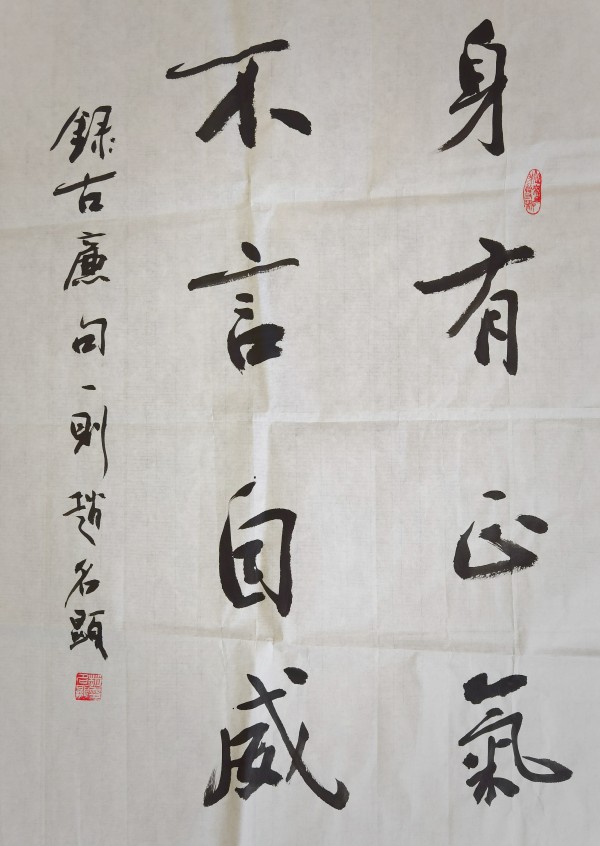 身有正氣
不言自威
錄古廉句一則趙名顯